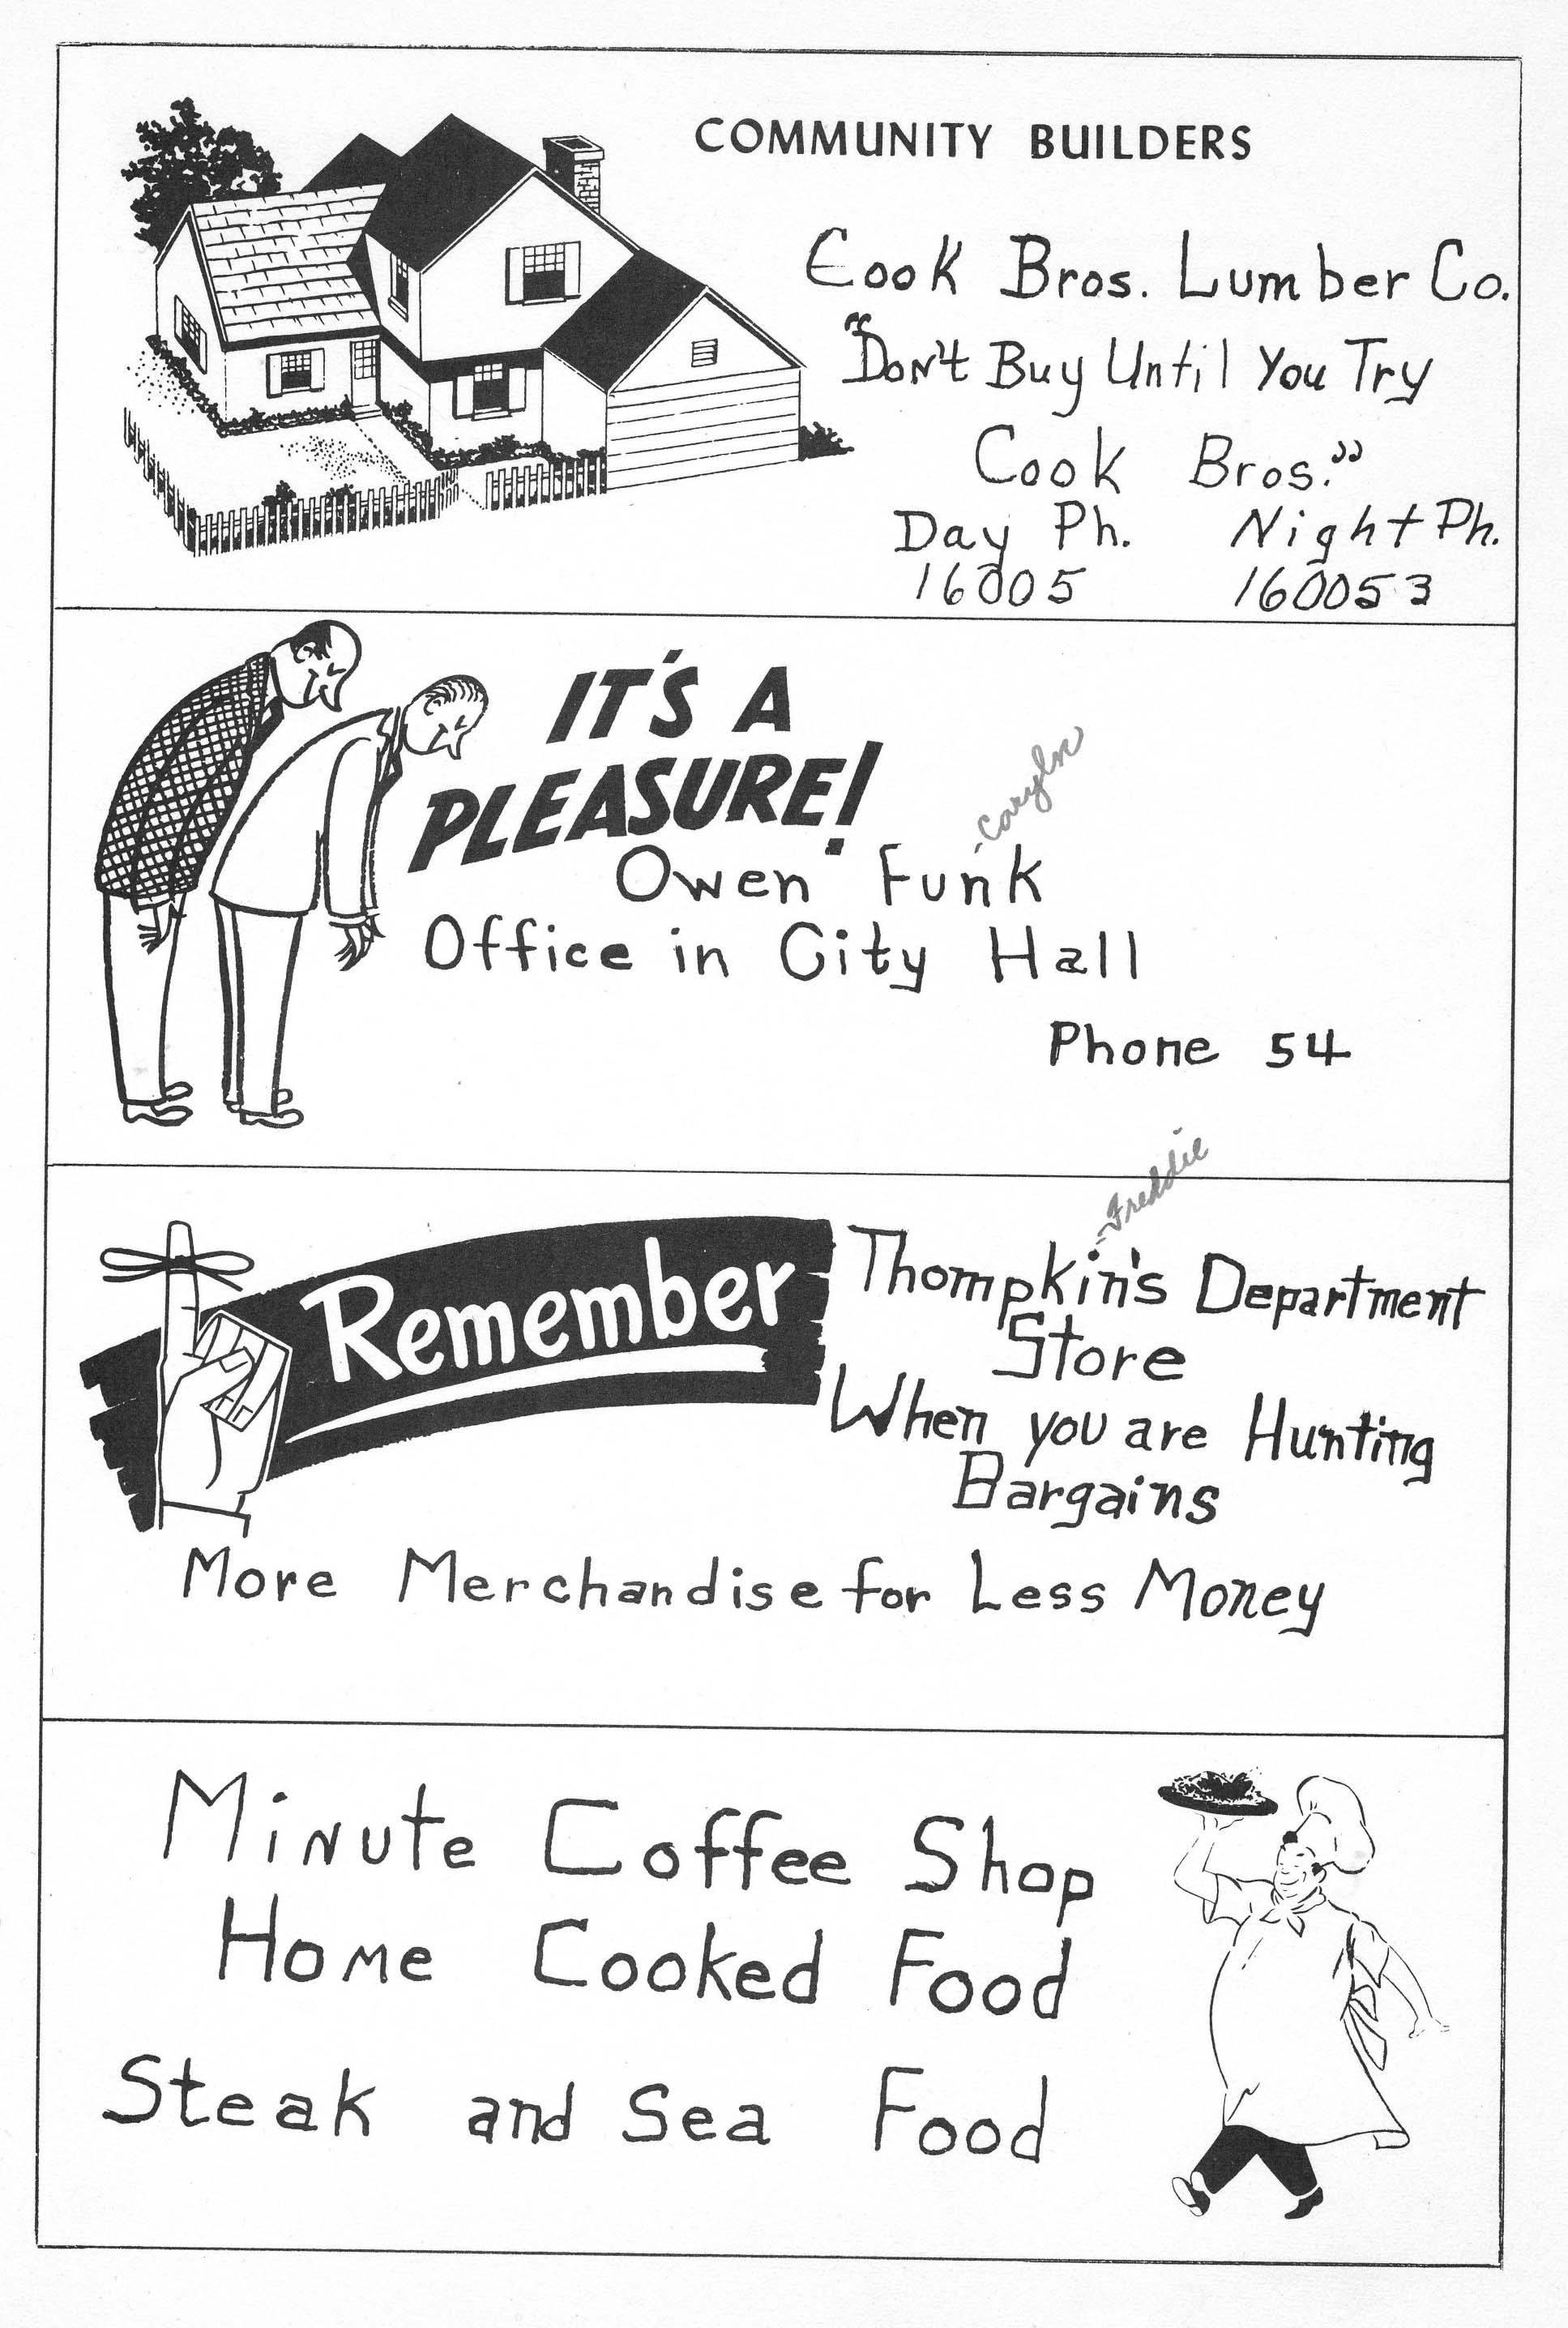 COMMUNITY BUILDERS
Cook Bros. Lumber Co.
"Don't Buy Until You Try
Cook Bros."
Day Ph. Night Ph.
16005 160053
IT'S A
PLEASURE!
-Caryln
Owen Funk
Office in City Hall
Phone 54
-Freddie
Remember
Thompkin's Department
Store
When you are Hunting
Bargains
More Merchandise for Less Money
Minute Coffee Shop
Home Cooked Food
Steak and Sea Food